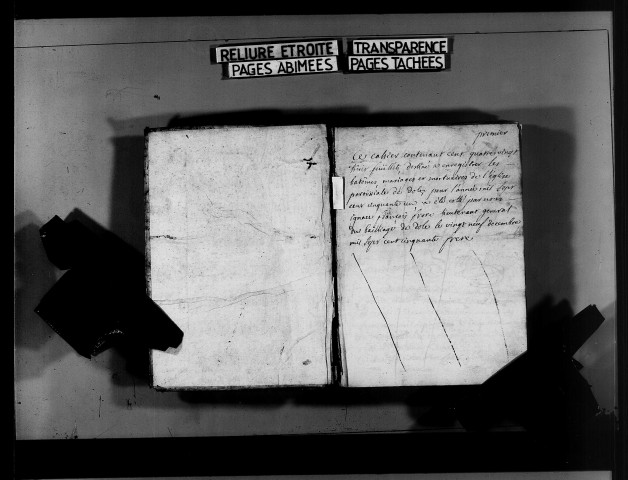 RELIURE ETROITE TRANSPARENCE
PAGES ABIMEES PAGES TACHEES
premier
Ce cahier contenant cent quatrevingt
feuillets, destiné a enregistrer les
batêmes, mariages et mortuaires de l'église
paroissiale de dole, pour l'année mil sept
cent cinquante un a été coté par nous
ignace françois frere lieutenant general
du bailliage de dole le vingt neuf decembre
mil sept cent cinquante frere